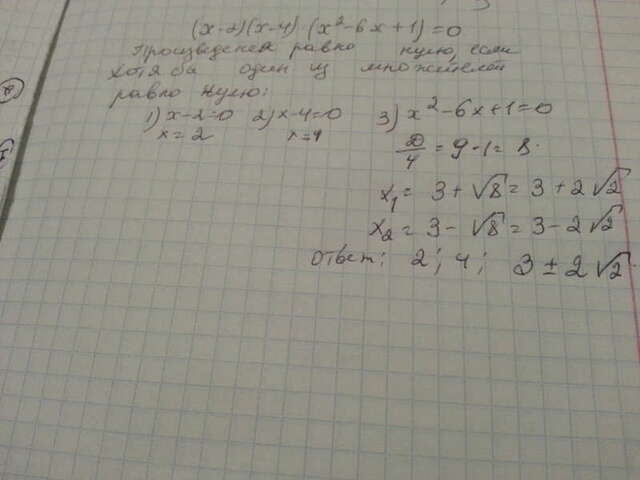 (x-2)(x-4) (x²-6x+1)=0
Произведение равно нулю, если
хотя бы один из множителей
равно нулю:
1) x-2=0 2) x-4=0 3) x²-6x+1=0
x=2 x=4
D/4 = 9-1= 8.
x₁= 3+√8= 3+2√2
x₂= 3-√8= 3-2√2
Ответ: 2; 4; 3±2√2.